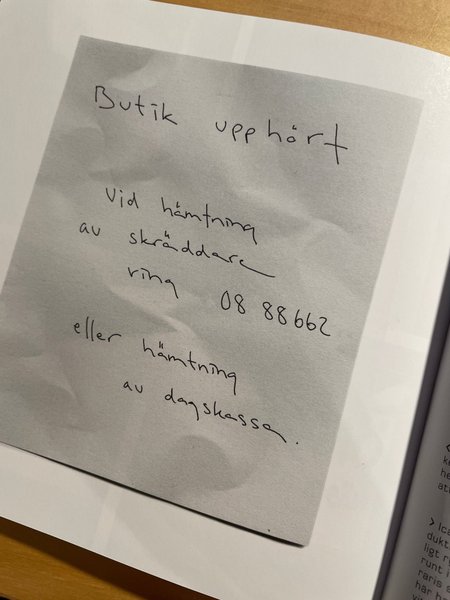 Butik upphört
Vid hämtning
av skräddare
ring 08 88662
eller hämtning
av dagskassa.
> Ica
dukt
ligt r
runt i
raris
har ba